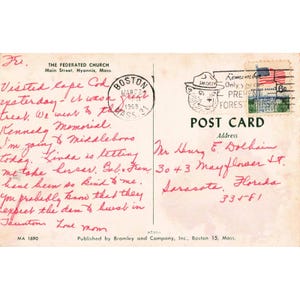 Fri.
THE FEDERATED CHURCH
Main Street, Hyannis, Mass.
Visited Cape Cod
yesterday - it was a great
treat. We went to the
Kennedy Memorial.
I'm going to Middleboro
today. Linda is letting
me take her car. Col. & Fran
have been so kind to me.
You probably know that they
expect the dam to burst in
Taunton Love Mom
MA 1890
Published by Bromley and Company, Inc., Boston 15, Mass.
BOSTON
MASS.
1968
SMOKEY
Remember
Only you can
PREVENT
FOREST
6c
POST CARD
Address
Mr Henry E
3043 Mayflower St.
Sarasota, Florida
33581